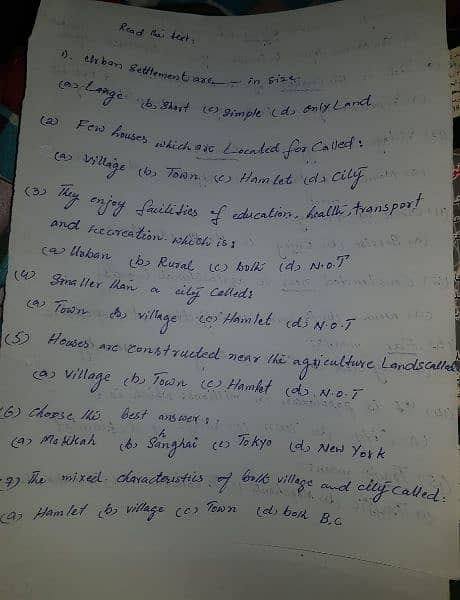 Read the text:
1). Urban Settlement are — in size
(a) Large (b) Short (c) Simple (d) only Land
(2) Few houses which are Located far Called:
(a) Village (b) Town (c) Hamlet (d) City
(3) They enjoy facilities of education, health, transport
and recreation which is:
(a) Urban (b) Rural (c) both (d) N.O.T
(4) Smaller than a city Called:
(a) Town (b) village (c) Hamlet (d) N.O.T
(5) Houses are constructed near the agriculture Lands called
(a) Village (b) Town (c) Hamlet (d) N.O.T
(6) Choose the best answer:
(a) Makkah (b) Shanghai (c) Tokyo (d) New York
(7) The mixed characteristics of both village and city called:
(a) Hamlet (b) village (c) Town (d) both B,C